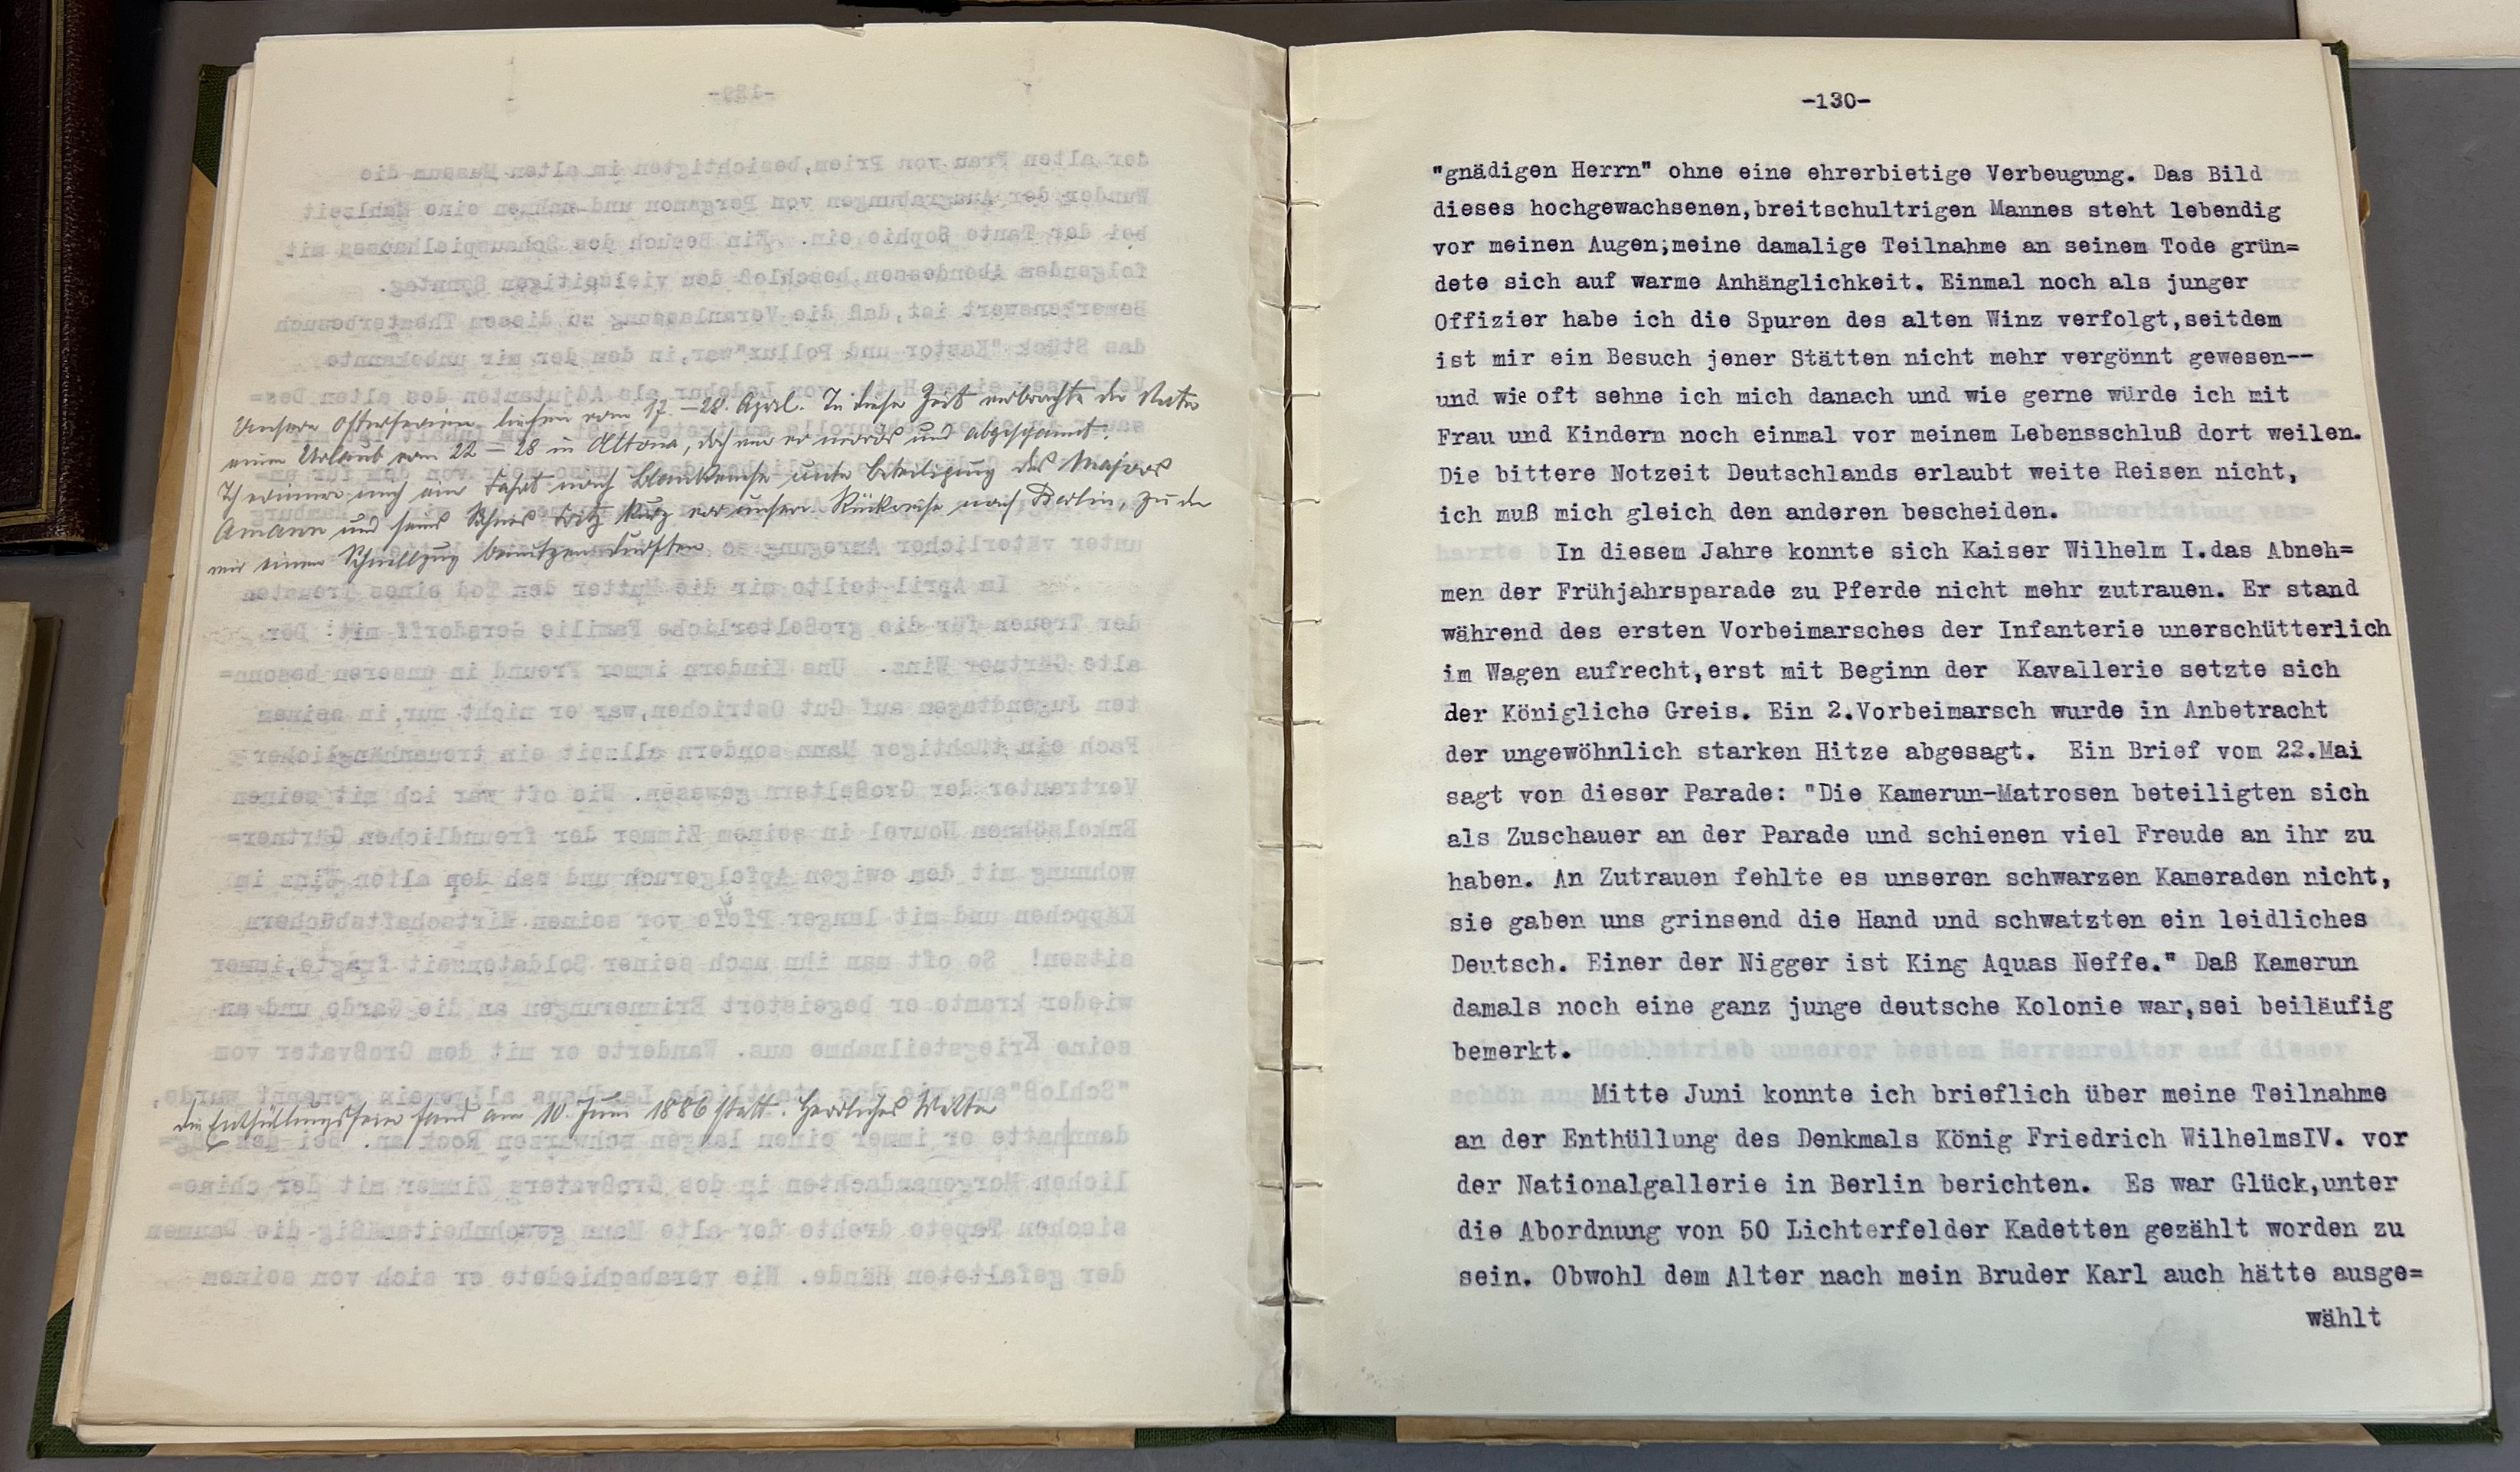 Unsere Osterferien liefen vom 17. – 28. April. In dieser Zeit verbrachte der Vater
einen Urlaub vom 22 – 28 in Altona, doch war er nervös und abgespannt.
Ich erinnere mich einer Fahrt nach Blankenese unter Beteiligung des Majors
Amann und seines Sohnes Fritz kurz vor unserer Rückreise nach Berlin, zu der
wir einen Schnellzug benutzen durften
Die Enthüllungsfeier fand am 10. Juni 1886 statt. Herrliches Wetter
-130-
"gnädigen Herrn" ohne eine ehrerbietige Verbeugung. Das Bild
dieses hochgewachsenen,breitschultrigen Mannes steht lebendig
vor meinen Augen;meine damalige Teilnahme an seinem Tode grün=
dete sich auf warme Anhänglichkeit. Einmal noch als junger
Offizier habe ich die Spuren des alten Winz verfolgt,seitdem
ist mir ein Besuch jener Stätten nicht mehr vergönnt gewesen--
und wie oft sehne ich mich danach und wie gerne würde ich mit
Frau und Kindern noch einmal vor meinem Lebensschluß dort weilen.
Die bittere Notzeit Deutschlands erlaubt weite Reisen nicht,
ich muß mich gleich den anderen bescheiden.
In diesem Jahre konnte sich Kaiser Wilhelm I.das Abneh=
men der Frühjahrsparade zu Pferde nicht mehr zutrauen. Er stand
während des ersten Vorbeimarsches der Infanterie unerschütterlich
im Wagen aufrecht,erst mit Beginn der Kavallerie setzte sich
der Königliche Greis. Ein 2.Vorbeimarsch wurde in Anbetracht
der ungewöhnlich starken Hitze abgesagt. Ein Brief vom 22.Mai
sagt von dieser Parade: "Die Kamerun-Matrosen beteiligten sich
als Zuschauer an der Parade und schienen viel Freude an ihr zu
haben. An Zutrauen fehlte es unseren schwarzen Kameraden nicht,
sie gaben uns grinsend die Hand und schwatzten ein leidliches
Deutsch. Einer der Nigger ist King Aquas Neffe." Daß Kamerun
damals noch eine ganz junge deutsche Kolonie war,sei beiläufig
bemerkt.
Mitte Juni konnte ich brieflich über meine Teilnahme
an der Enthüllung des Denkmals König Friedrich WilhelmsIV. vor
der Nationalgallerie in Berlin berichten. Es war Glück,unter
die Abordnung von 50 Lichterfelder Kadetten gezählt worden zu
sein. Obwohl dem Alter nach mein Bruder Karl auch hätte ausge=
wählt